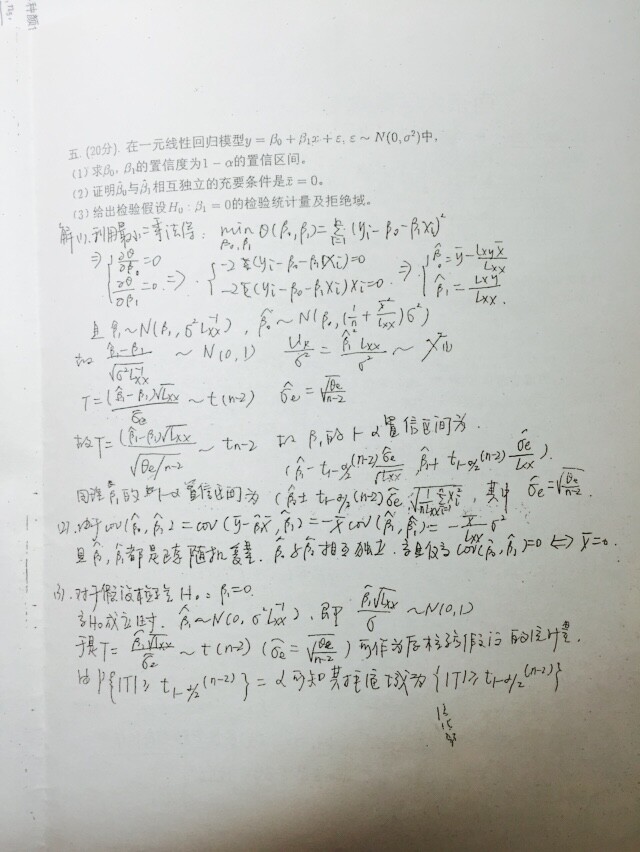 五. (20分). 在一元线性回归模型y = β₀ + β₁x + ε, ε ~ N(0, σ²)中,
(1) 求β₀, β₁的置信度为1 − α的置信区间。
(2) 证明β̂₀与β̂₁相互独立的充要条件是x̄ = 0。
(3) 给出检验假设H₀ : β₁ = 0的检验统计量及拒绝域。
解 (1). 利用最小二乘法得: min_{β₀,β₁} Q(β₀,β₁) = Σ(yᵢ−β₀−β₁xᵢ)²
⇒ { ∂Q/∂β₀ = 0, ∂Q/∂β₁ = 0 ⇒ { −2Σ(yᵢ−β₀−β₁xᵢ)=0, −2Σ(yᵢ−β₀−β₁xᵢ)xᵢ=0 ⇒ { β̂₀ = ȳ − Lxy x̄/Lxx, β̂₁ = Lxy/Lxx.
且 β̂₁ ~ N(β₁, σ²Lxx⁻¹), β̂₀ ~ N(β₀, (1/n + x̄²/Lxx)σ²)
故 (β̂₁−β₁)/√(σ²Lxx⁻¹) ~ N(0,1) = β̂₁²Lxx/σ² ~ χ²(1)
T = (β̂₁−β₁)√Lxx/σ̂e ~ t(n−2) σ̂e = √(Qe/(n−2))
故T = (β̂₁−β₁)√Lxx/√(Qe/n−2) ~ t n−2 故 β₁的 1−α 置信区间为.
(β̂₁ − t₁₋α/₂(n−2) σ̂e/√Lxx, β̂₁ + t₁₋α/₂(n−2) σ̂e/Lxx).
同理 的 1−α 置信区间为 (β̂₀ ± t₁₋α/₂(n−2) σ̂e √(1/(nLxx) Σxᵢ²), 其中 σ̂e = √(Qe/(n−2))
(2). 由于 cov(β̂₀, β̂₁) = cov(ȳ−β̂₁x̄, β̂₁) = −x̄ cov(β̂₁, β̂₁) = −x̄/Lxx σ²
且 β̂₀, β̂₁都是正态随机变量. β̂₀与β̂₁相互独立. 当且仅当 cov(β̂₀, β̂₁)=0 ⇔ x̄=0.
(3). 对于假设检验 H₀: β₁=0.
当H₀成立时. β̂₁ ~ N(0, σ²Lxx⁻¹), 即 β̂₁√Lxx/σ ~ N(0,1)
于是 T = β̂₁√Lxx/σ̂e ~ t(n−2) (σ̂e = √(Qe/(n−2))) 可作为 检验 的统计量.
由P{|T| ≥ t₁₋α/₂(n−2)} = α 可知其拒绝域为 {|T| ≥ t₁₋α/₂(n−2)}